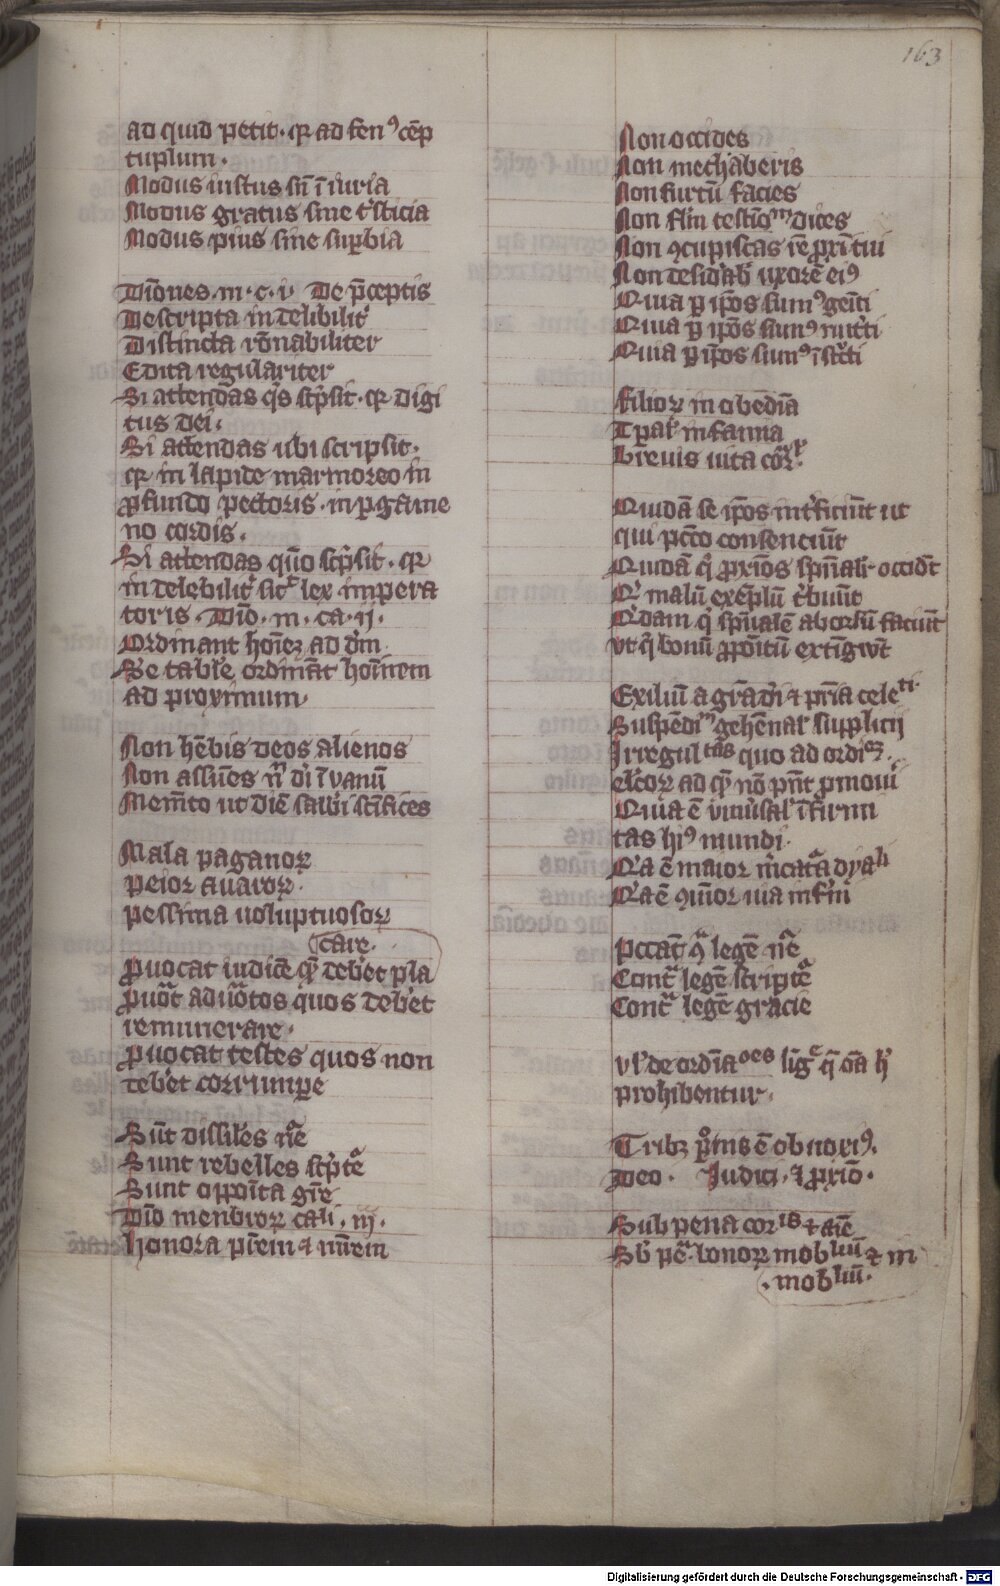 163
ad quid petit · qꝛ ad fenꝰ cēp
tuplum ·
Modus iustus sn̄ ī iuria
Modus gratus sine tᷤsticia
Modus pius sine suꝑbia
Diōnes · m · c · i · De p̄ceptis
Descripta indelibilit᷑
Distincta rōnabiliter
Edita regulariter
Si attendas qͥs scͥpsit · qꝛ digi
tus dei ·
Si attendas ubi scripsit ·
qꝛ in lapide marmoreo in
ꝓfundo pectoris · in ꝑgame
no cordis ·
Si attendas quō scͥpsit · qꝛ
indelebilit᷑ sic᷑ lex impera
toris · Diō · m · ca · ij ·
Ordinant hoīeꝫ ad dm̄
Se table ordināt hoīnem
ad proximum ·
Non hēbis deos alienos
Non assūes n̄ dī ī vanū
Mem̄to ut diē sabbī sc̄ifices
Mala paganoꝝ
peior auaroꝝ ·
pessima uoluptuosoꝝ
care ·
ꝓuocat iudicē qͫ debet pla
ꝓuōt aduōtos quos debet
remunerare ·
ꝓuocat testes quos non
debet corrumꝑe
Sūt dissiles nᷓe
Sunt rebelles scͥptᷓe
Sunt oppoīta gr̄e
Diō menbroꝝ cali · iij ·
honora pr̄em ⁊ mr̄em
Non occides
Non mechaberis
Non furtū facies
Non flm̄ testīoᵐ dices
Non ꝯcupiscas rē ꝓxī tui
Non desidab᷑ uxorē eiꝰ
Quia ꝑ ip̄os sumꝰ geīti
Quia ꝑ ip̄os sumꝰ nutͥti
Quia ꝑ ip̄os sumꝰ īstͨti
filioꝝ inobediā
Tꝑal᷑ infamia
Breuis uita coꝝ ·
Quidā se ip̄os int᷑ficiūt ut
qui pctō consenciūt
Quidā qͥ ꝓxīos spūali᷑ occidt
Qͥ malū exēplū tͥbuūt
Qͥdam qͥ spūalē aborsū faciūt
vt qͥ bonū ꝓpoītū extīgwt
Exiliū a grādī ⁊ pr̄ia celeᵗⁱ·
Suspēdiᵐ gehēnal᷑ supplicij
Irregulᵗᵃˢ quo ad ordīeꝫ ·
elc̄oꝝ ad qͫ nō pn̄t ꝓmoui
Quia ē vniu᷑sal᷑ īfirmi
tas hiꝰ mundi ·
Qͥa ē maior m̄catᷓa dyaˡⁱ
Qͥa ē ꝯmͥor uia inf̄ni
Pccāt ꝯᷓ legē nᷓe
Contᷓ legē scriptᷓe
Contᷓ legē gracie
vl᷑ de ordīaᵒᵉˢ līgᷓe q̄ oīa h᷑
prohibentur ·
Tribꝫ pͥmꝰ ē obnoxiꝰ ·
Deo · Iudici · ⁊ ꝓxiō ·
Sub pena corⁱˢ ⁊ aīe
Sb᷑ pēᷓ bonoꝝ mobˡⁱᵘ̄ ⁊ in
· mobˡⁱᵘ̄ ·
Digitalisierung gefördert durch die Deutsche Forschungsgemeinschaft - DFG